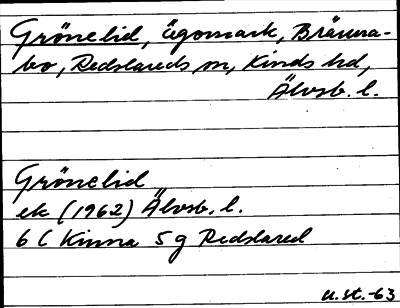 Grönelid, ägomark, Bränna-
bo, Redslareds sn, Kinds hd,
Älvsb. l.
Grönelid
ek (1962) Älvsb. l.
6 C Kinna 5 g Redslared
u.st.-63